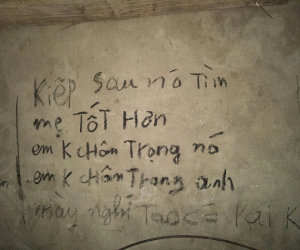 Kiếp sau nó Tìm
mẹ TốT Hơn
em K cHân Trọng nó
em K cHân Trọng anh
mày nghĩ Tao có